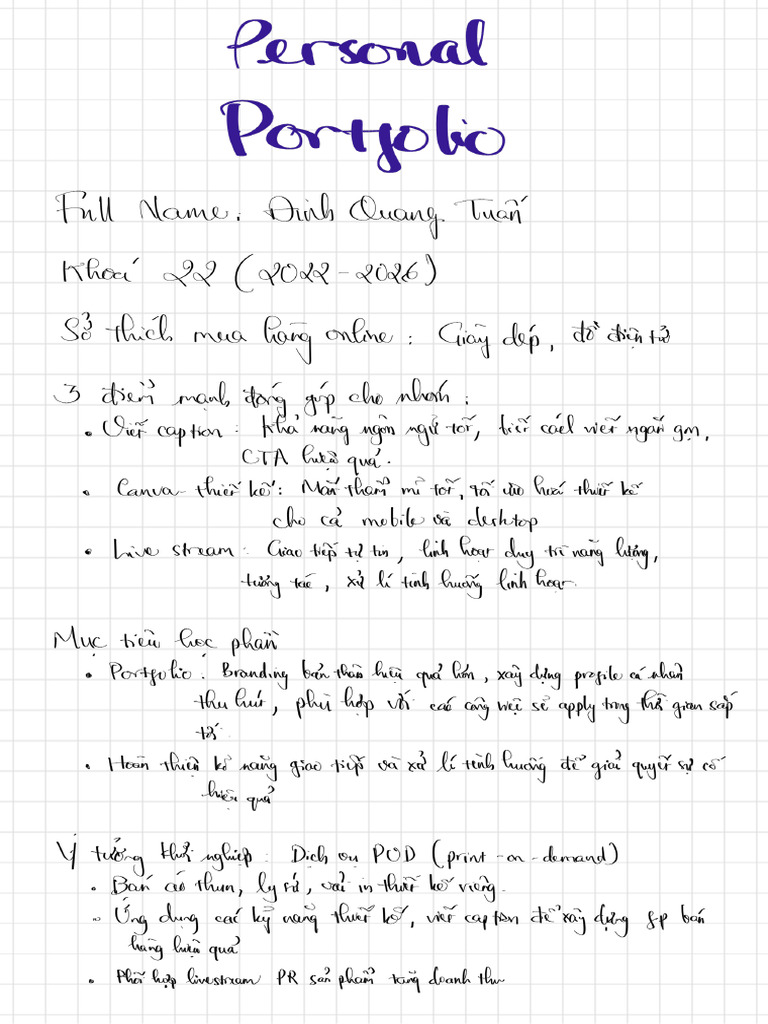 Personal
Portfolio
Full Name: Đinh Quang Tuấn
Khoá 22 (2022 - 2026)
Sở thích mua hàng online: Giày dép, đồ điện tử
3 điểm mạnh đóng góp cho nhóm:
• Viết caption: Khả năng ngôn ngữ tốt, biết cách viết ngắn gọn,
CTA hiệu quả.
• Canva - thiết kế: Mắt thẩm mĩ tốt, tối ưu hoá thiết kế
cho cả mobile và desktop
• Live stream: Giao tiếp tự tin, linh hoạt duy trì năng lượng,
tương tác, xử lí tình huống linh hoạt.
Mục tiêu học phần
• Portfolio: Branding bản thân hiệu quả hơn, xây dựng profile cá nhân
thu hút, phù hợp với các công việc sẽ apply trong thời gian sắp
tới.
• Hoàn thiện kĩ năng giao tiếp và xử lí tình huống để giải quyết sự cố
hiệu quả
Ý tưởng khởi nghiệp: Dịch vụ POD (print-on-demand)
• Bán áo thun, ly sứ, vải in thiết kế riêng.
• Ứng dụng các kỹ năng thiết kế, viết caption để xây dựng sp bán
hàng hiệu quả
• Phối hợp livestream PR sản phẩm tăng doanh thu